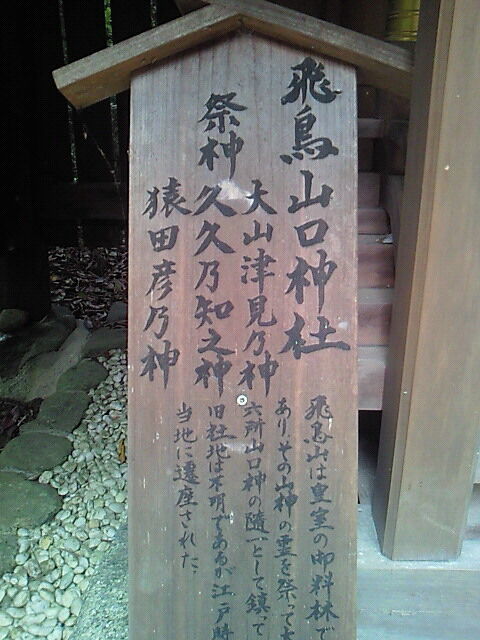 飛鳥山口神社
大山津見乃神
祭神 久久乃知之神
猿田彦乃神
飛鳥山は皇室の御料林で
あり、その山神の霊を祭って大
六所山口神の随一として鎮って
旧社地は不明であるが江戸時
当地に遷座された。